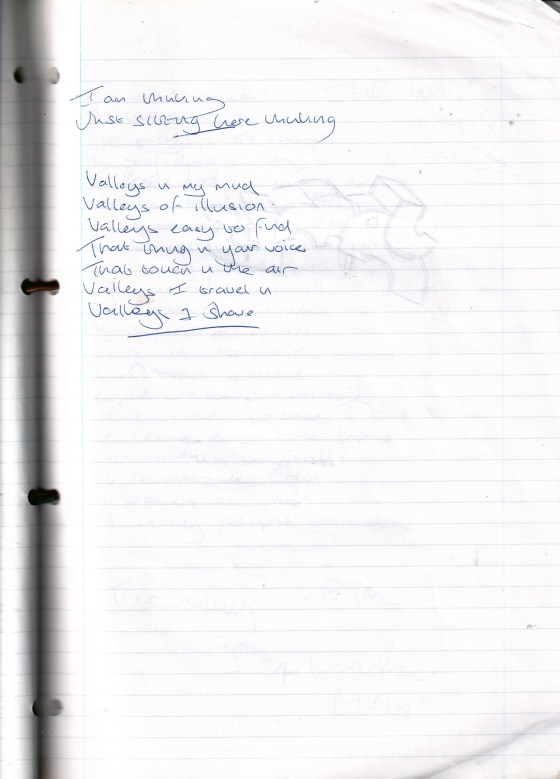 I am thinking
Just sitting here thinking
Valleys in my mind
Valleys of illusion
Valleys easy to find
That thing in your voice
That touch in the air
Valleys I travel in
Valleys I share